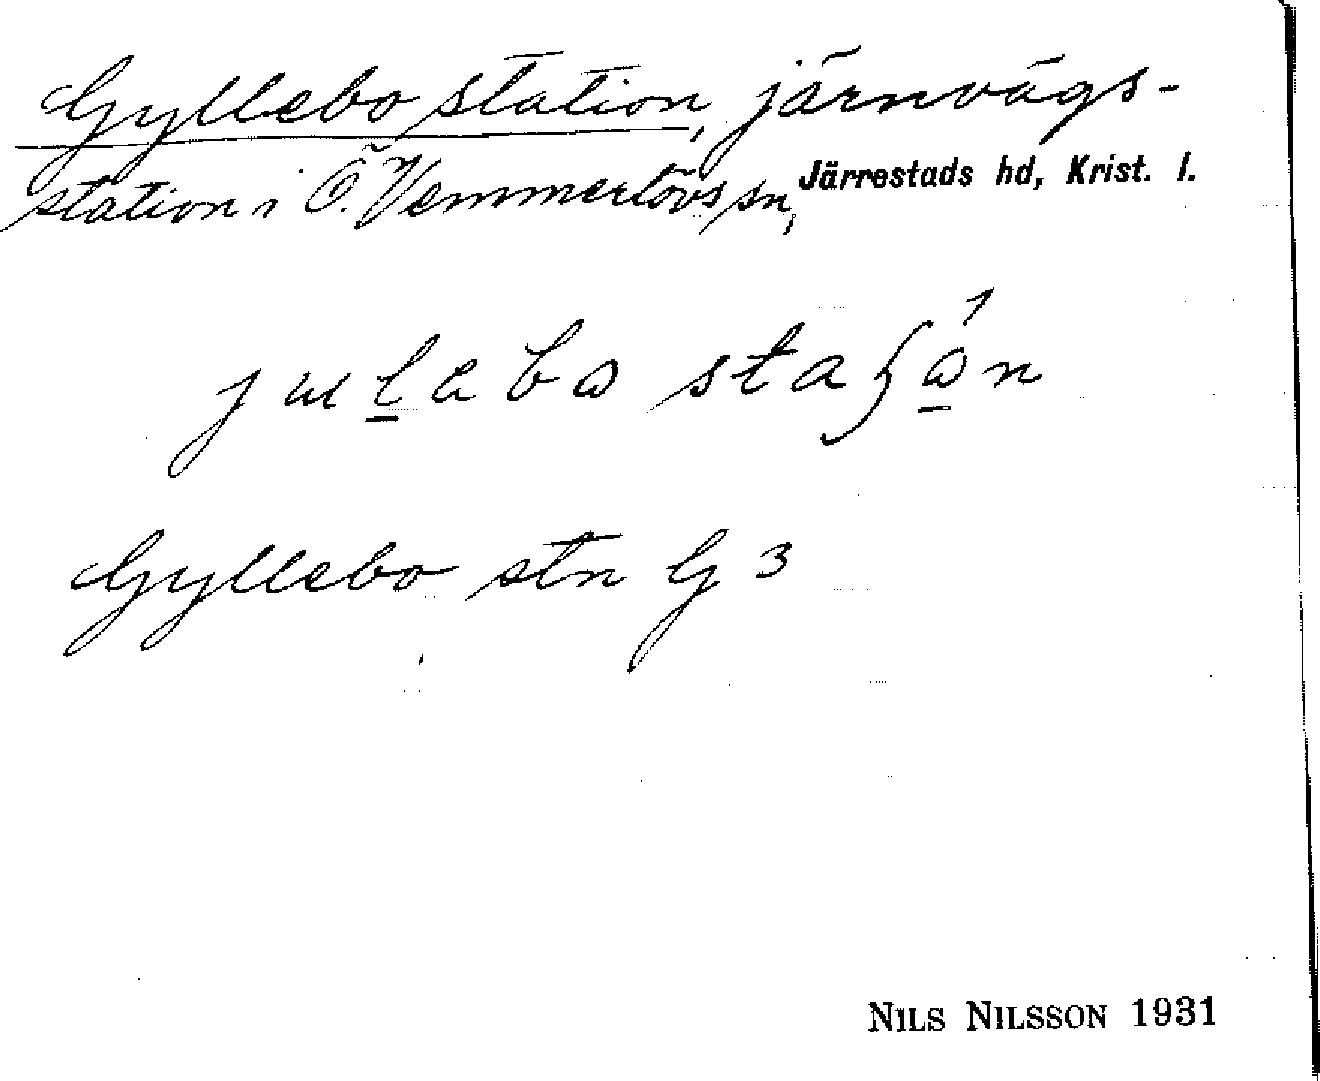 Gyllebo station, järnvägs-
station i Ö. Vemmerlövs sn, Järrestads hd, Krist. l.
Gyllebo stn G 3
NILS NILSSON 1931